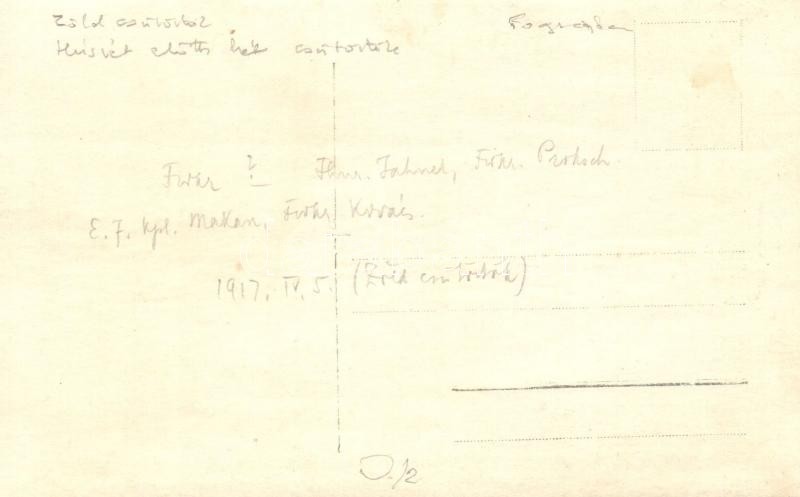 Zöld csütörtök
Húsvét előtti hét csütörtök
Fwkr ? Fhnr. Jahnel, Fwkr. Proksch.
E. F. Kpl. Makan, Fwkr Kovács.
1917. IV. 5. (Zöld csütörtök)
D./2